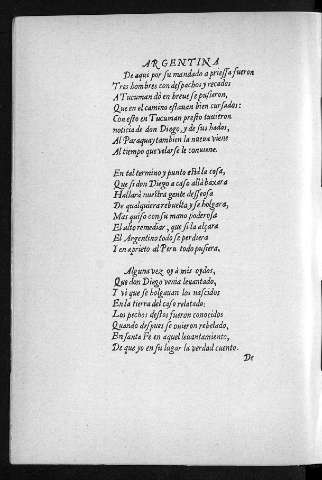 ARGENTINA
De aqui por su mandado a priessa fueron
Tres hombres con despachos y recados
A Tucuman dõ en breue se pusieron,
Que en el camino estauan bien cursados:
Con esto en Tucuman presto tuuieron
noticia de don Diego, y de sus hados,
Al Paraguay tambien la nueua viene
Al tiempo que velarse le conuene.
En tal termino y punto està la cosa,
Que si don Diego a caso allà baxara
Hallarà nuestra gente desseosa
De qualquiera rebuelta y se holgara,
Mas quiso con su mano poderosa
El alto remediar, que si la alçara
El Argentino todo se perdiera
Y en aprieto al Peru todo pusiera,
Alguna vez oy à mis oydos,
Que don Diego venia leuantado,
Y vi que se holgauan los nascidos
En la tierra del caso relatado:
Los pechos destos fueron conocidos
Quando despues se ouieron rebelado,
En santa Fè en aquel leuantamiento,
De que yo en su lugar la verdad cuento.
De